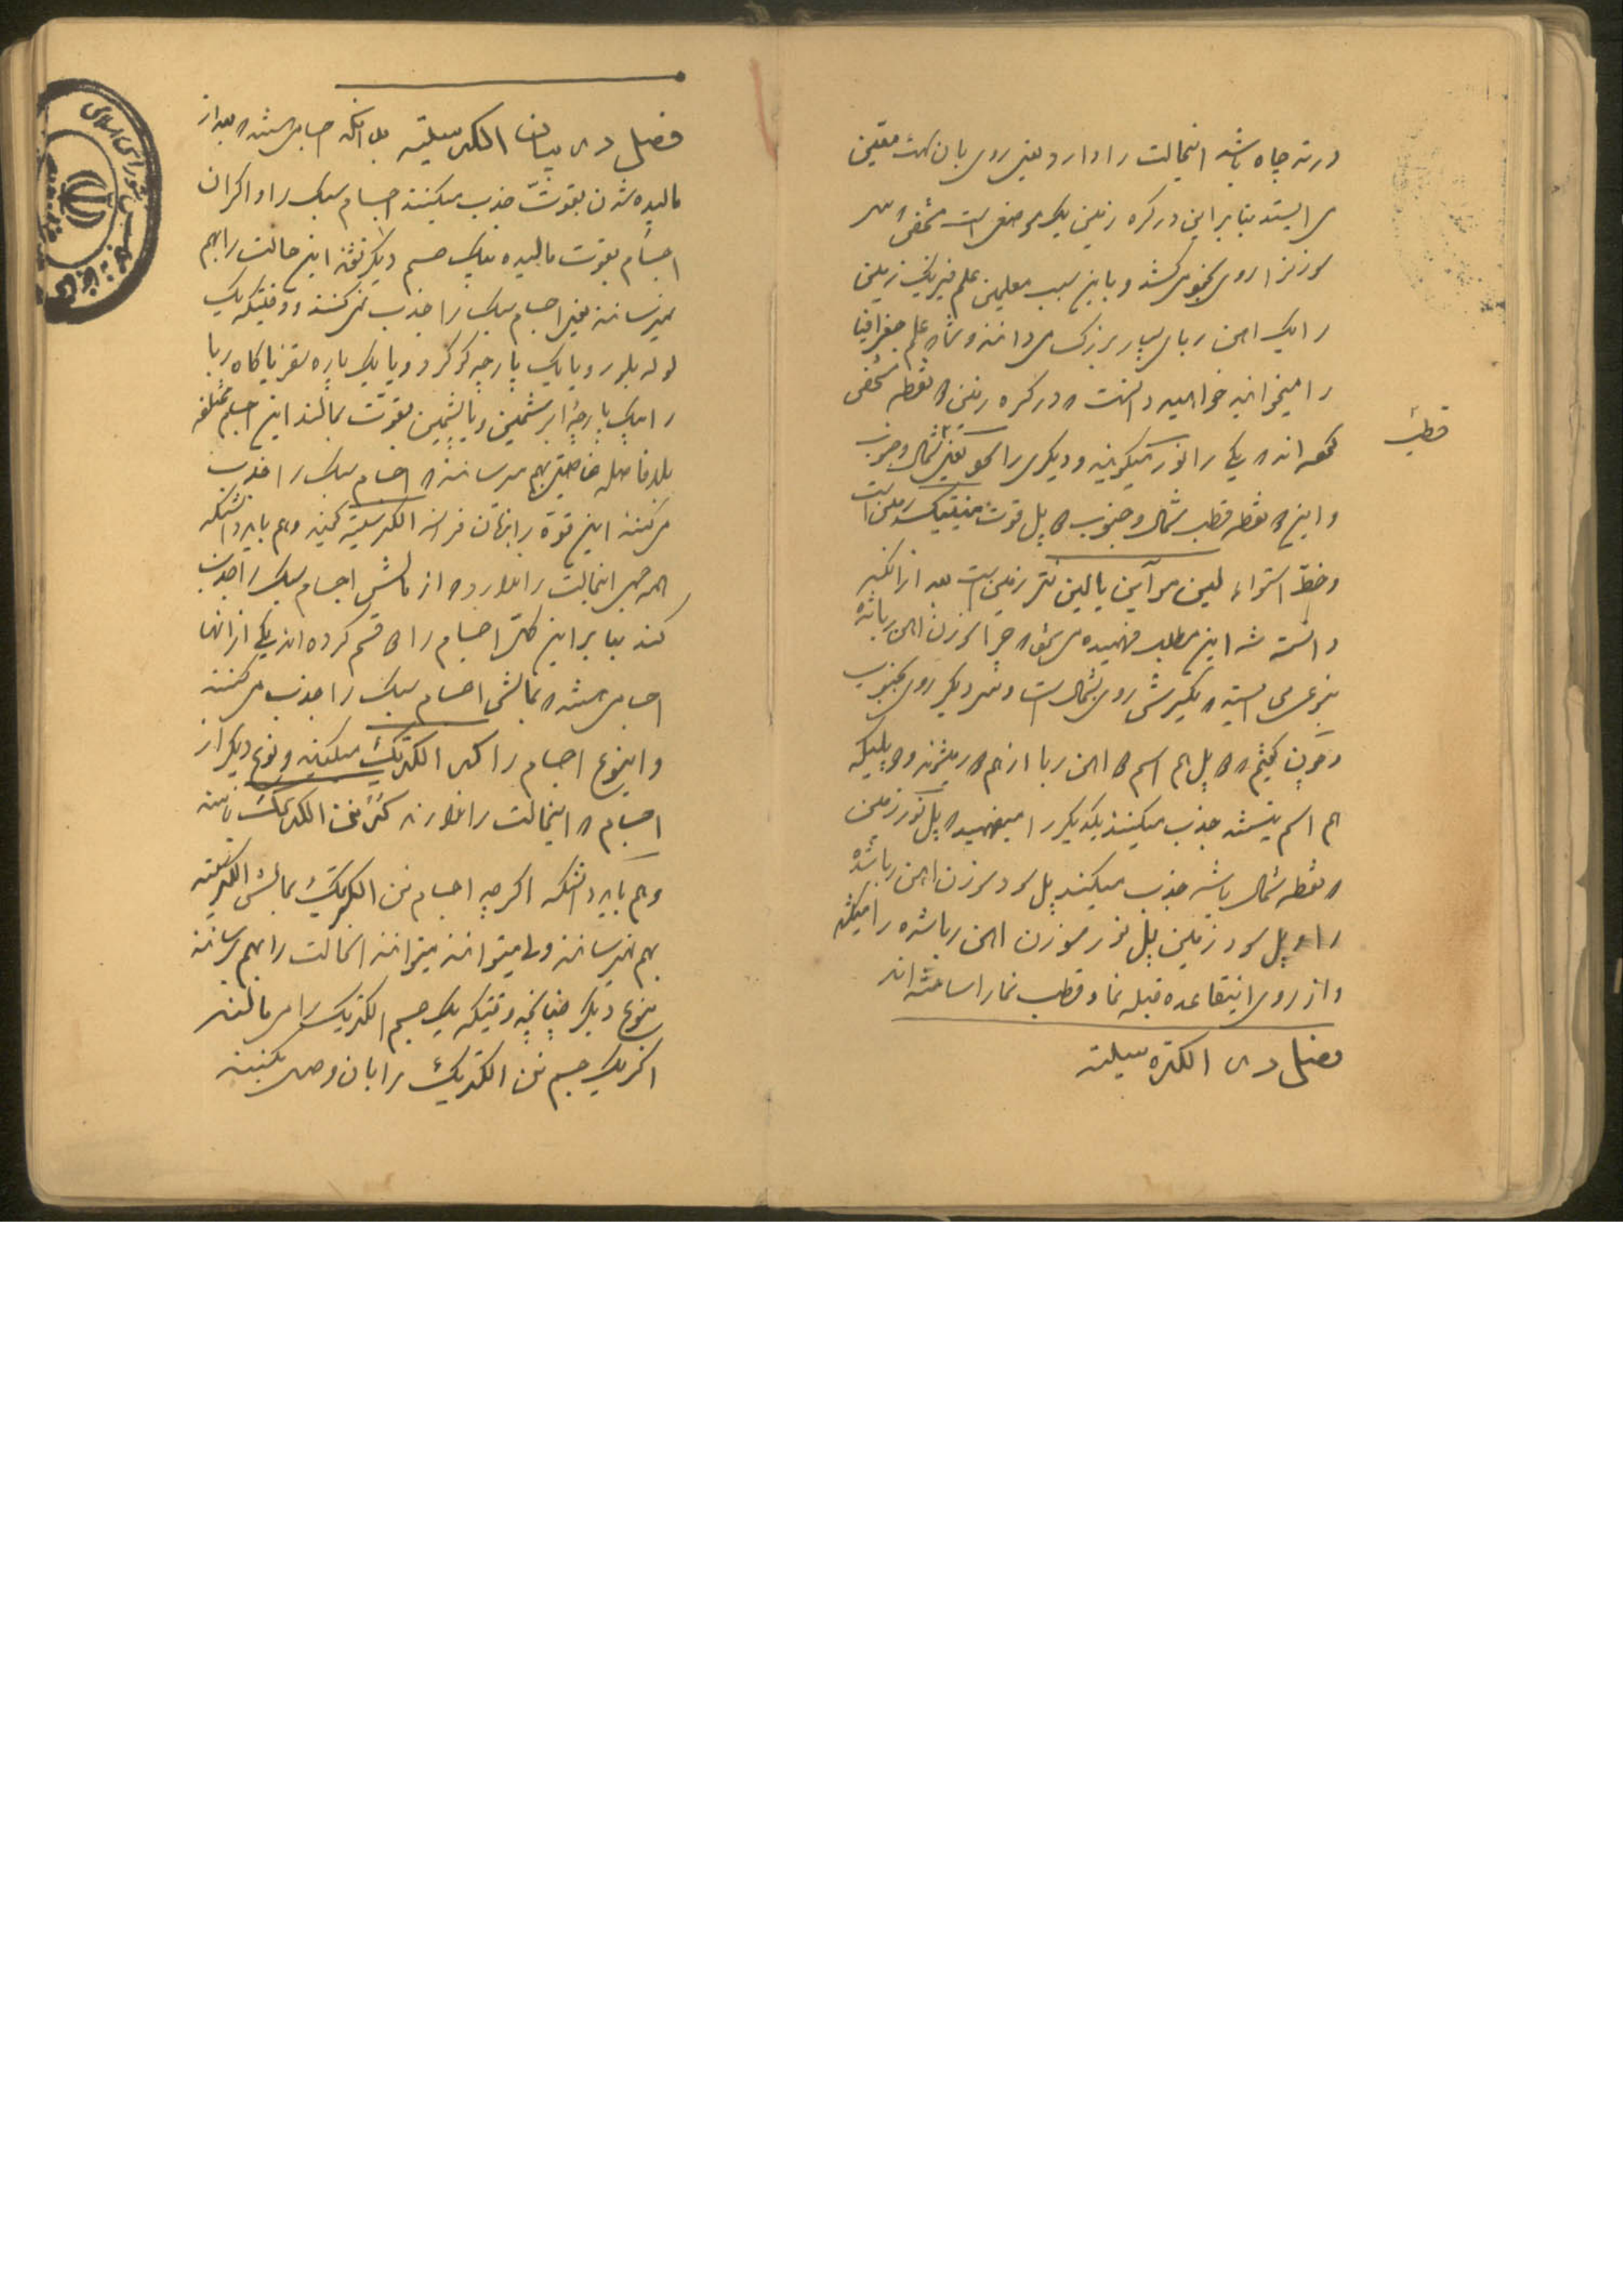 در ته چاه باشد اینحالت را دارد یعنی روی بان سمت معین
می ایستد بنا براین در کره زمین یک موضعی است مخفی که سر
سوزنرا روی بخود می کشد و باین سبب معلمین علم فیزیک زمین
را یک آهن ربای بسیار بزرک می دانند و شما که علم جغرافیا
را میخوانید خواهید دانست که در کره زمین دو نقطه مخفی
قطب
که یکی را نور میکویند و دیکری را سود یعنی شمال و جنوب
و این دو نقطه قطب شمال و جنوب دو پل قوت منیتیک زمین است
و خط استواء لین مو آین یا لین نتر زمین است بعد از آنکه
دانسته شد این مطلب فهمیده می شود که چرا سوزن آهن ربا شده
بنوعی می ایستد که یکسرش روی بشمال است و سر دیکر روی بجنوب
و چون کفتیم که دو پل هم اسم دو آهن ربا از هم دور میشوند و دو پلیکه
هم اسم نیستند جذب میکنند یکدیکر را میفهمید که پل نور زمین
که نقطه شمال باشد جذب میکند پل سود سوزن آهن ربا شده
را و پل سود زمین پل نور سوزن آهن ربا شده را میکشد
و از روی اینقاعده قبله نما و قطب نما را ساخته اند
فصل در الکتره سیته
فصل در بیان الکتره سیته بدانکه اجسامی هستند که بعد از
مالیده شدن بقوت جذب میکنند اجسام سبک را و اکر آن
اجسام بقوت مالیده بیک جسم دیکر نشوند این حالت را بهم
نمیرسانند یعنی اجسام سبک را جذب نمی کنند و وقتیکه یک
لوله بلور و یا یک پارچه کوکرد و یا یک پاره سقز یا کاه ربا
را بیک پارچهٔ ابریشمین و یا پشمین بقوت بمالند این اجسام مختلفه
بلا فاصله خاصیتی بهم میرسانند که اجسام سبک را جذب
می کنند این قوة را بزبان فرانسه الکتره سیته کویند و هم باید دانست که
همه جسم اینحالت را ندارد که از مالش اجسام سبک را جذب
کند بنا براین کل اجسام را دو قسم کرده اند یکی از آنها
اجسامی هستند که بمالش اجسام سبک را جذب می کنند
و اینوع اجسام را کر الکتریک میکویند و نوع دیکر از
اجسام که اینحالت را ندارند کر نن الکتریک نامند
و هم باید دانست که اکر چه اجسام نن الکتریک بمالش الکتره سیته
بهم نمیرسانند ولی میتوانند اینحالت را بهم رسانند
بنوع دیکر چنانچه وقتیکه یک جسم الکتریک را می مالند
اکر یک جسم نن الکتریک را بان وصل بکنند